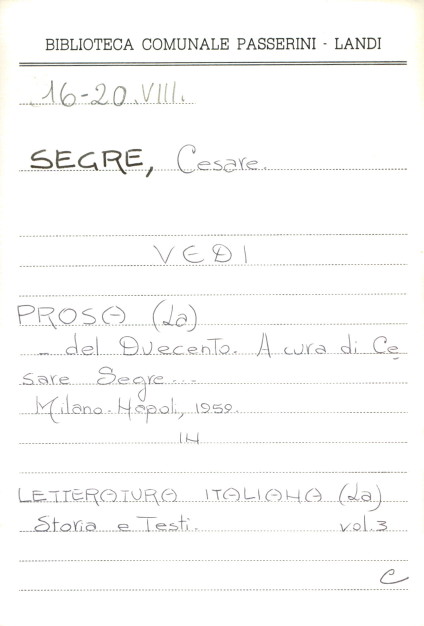 BIBLIOTECA COMUNALE PASSERINI - LANDI
16-20.VIII.
SEGRE, Cesare.
VEDI
PROSA (La)
- del Duecento. A cura di Ce
sare Segre...
Milano-Napoli, 1959.
IN
LETTERATURA ITALIANA (La)
Storia e Testi. vol.3
C